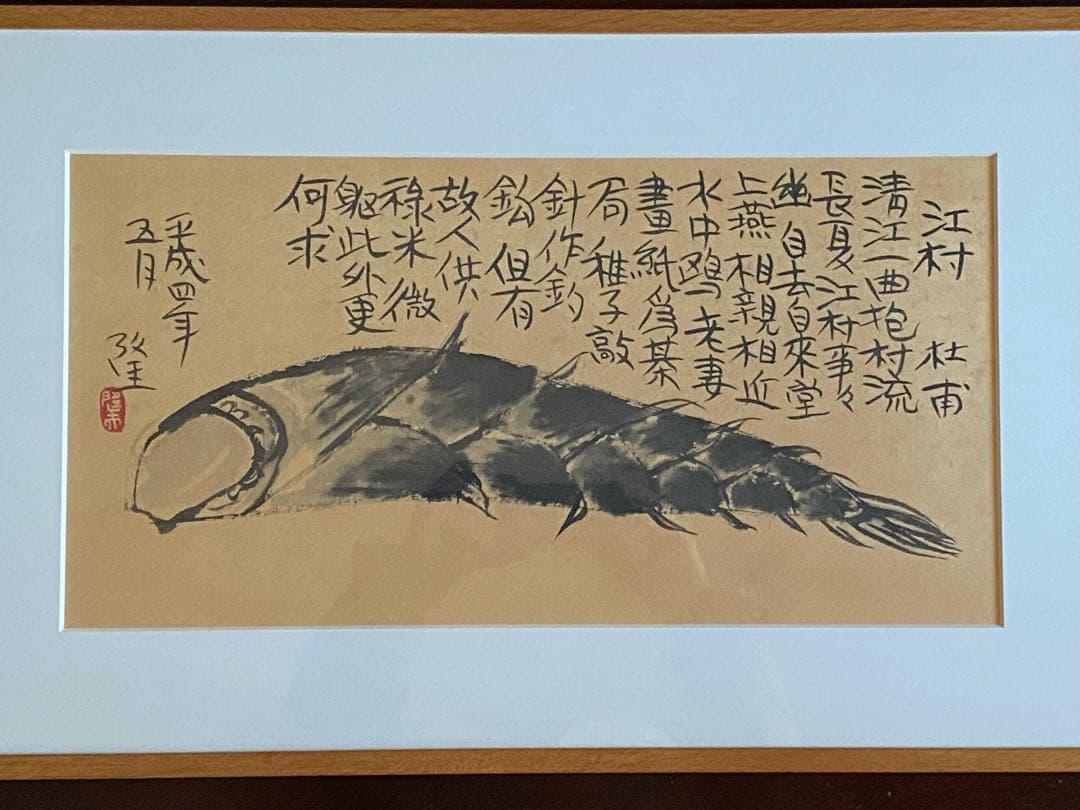 江村 杜甫
清江一曲抱村流
長夏江村事々
幽自去自來堂
上燕相親相近
水中鴎老妻
畫紙爲棊
局稚子敲
針作釣
鈎但有
故人供
禄米微
躯此外更
何求
平成四年
五月